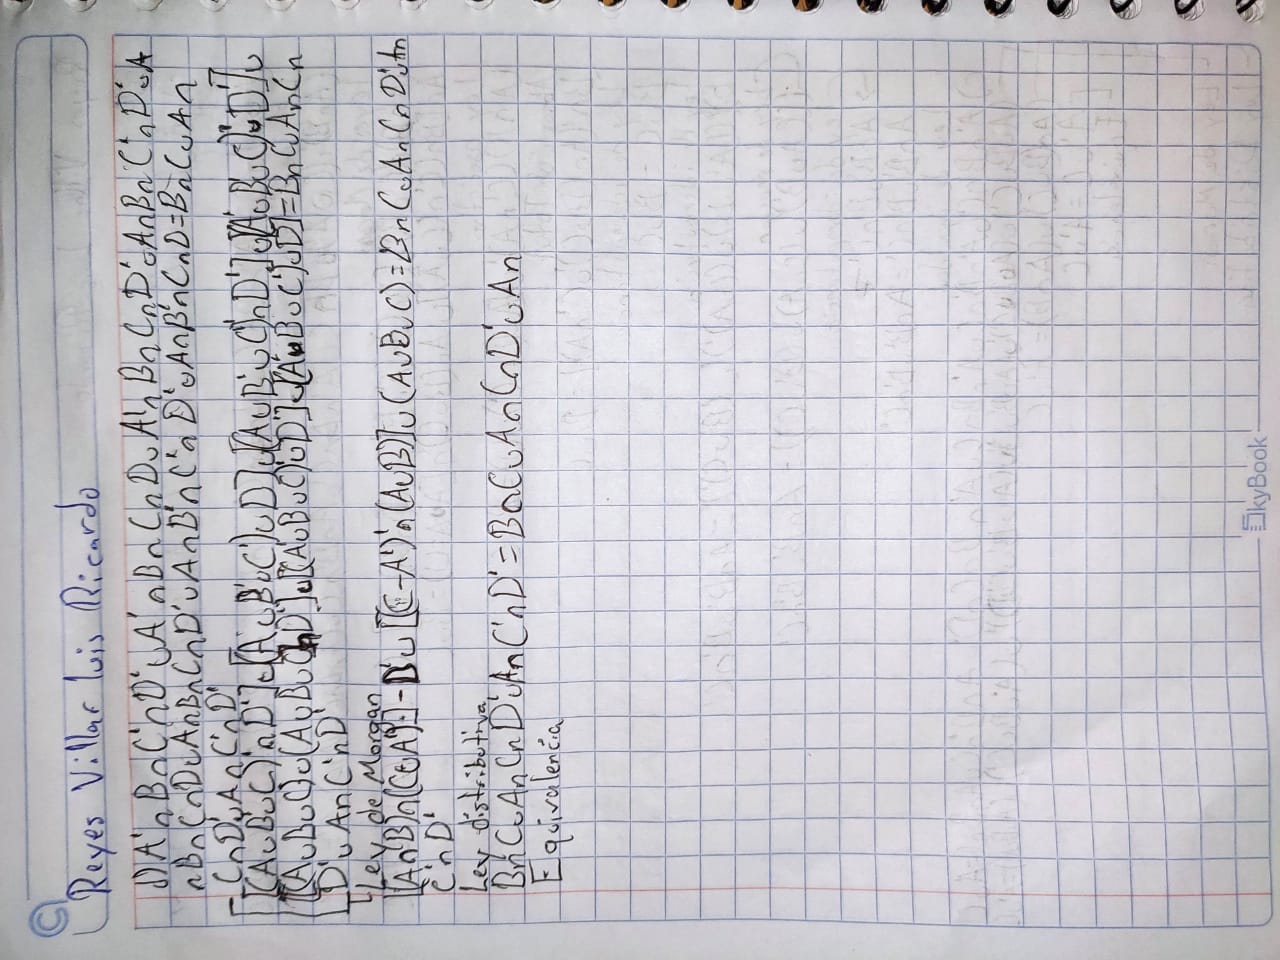 Reyes Villar luis Ricardo
d) A'∩B∩C'∩D'∪A'∩B∩C∩D∪A'∩B∩C∩D'∪A∩B∩C'∩D'∪A
∩B∩C∩D∪A∩B∩C∩D'∪A∩B'∩C'∩D'∪A∩B'∩C∩D=B∩C∪A∩
C∩D'∪A∩C'∩D'
[(A∪B'∪C)'∩D']∪[(A∪B'∪C')∪D]∪[(A∪B'∪C')'∩D']∪[(A'∪B'∪C)'∪D']∪
[(A∪B∪C)∪(A∪B∪C)∩D']∪[(A'∪B∪C)'∪D']∪[A'∪B∪C')∪D]=B∩C∪A∩C∩
D'∪A∩C'∩D'
Ley de Morgan
[A∩'B)∩(C∈A')]-D'∪[(C-A')'∩(A∪B)]∪(A∪B∪C)=B∩C∪A∩C∩D'∪A∩
C'∩D'
Ley distributiva
B∩C∪A∩C∩D'∪A∩C'∩D'=B∩C∪A∩C∩D'∪A∩
Equivalencia
SkyBook